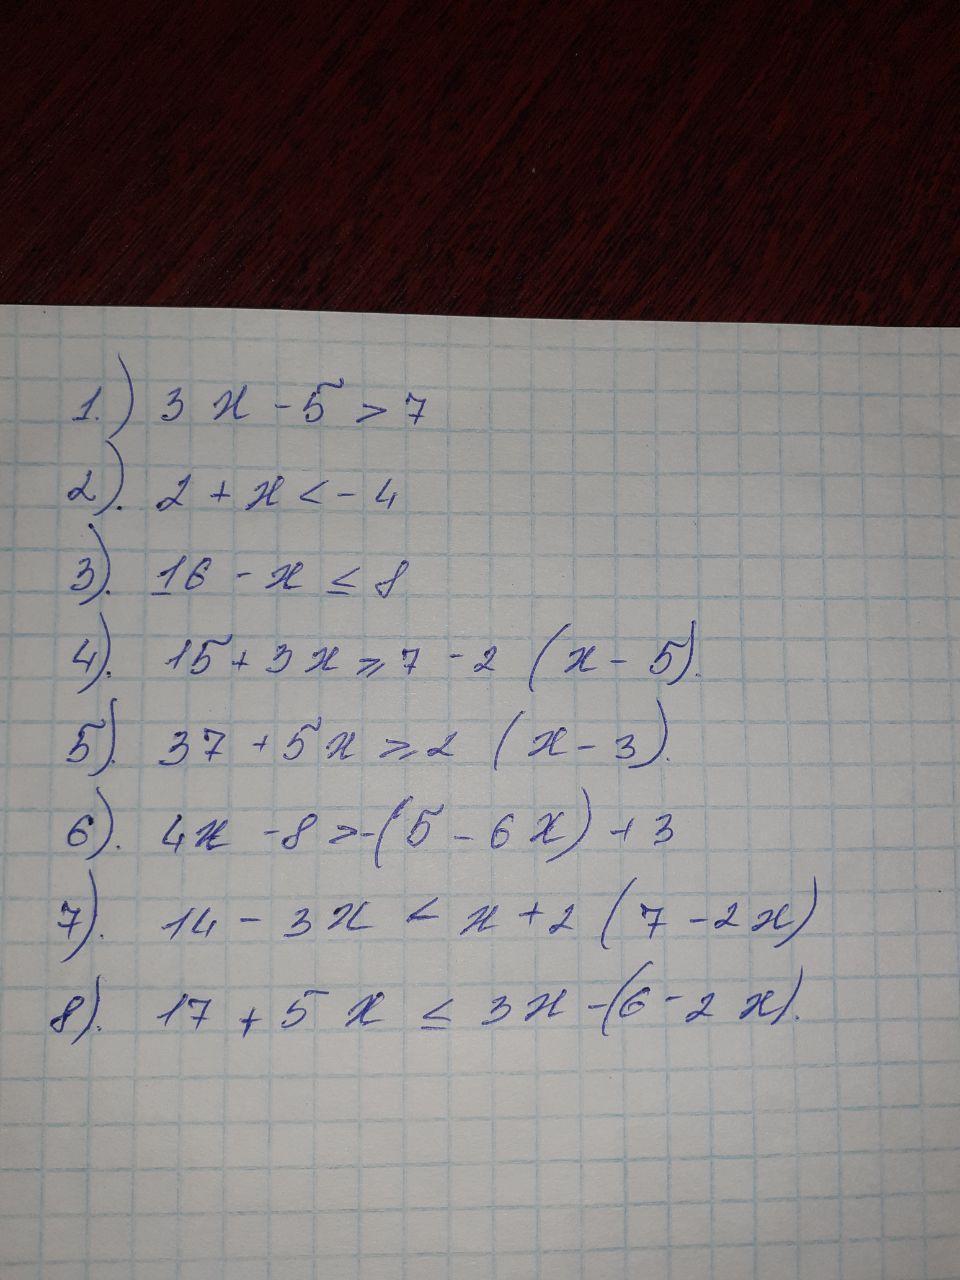 1.) 3x - 5 > 7
2). 2 + x < - 4
3). 16 - x ≤ 8
4). 15 + 3x ⩾ 7 - 2 (x - 5).
5). 37 + 5x ⩾ 2 (x - 3).
6). 4x - 8 > -(5 - 6x) + 3
7). 14 - 3x < x + 2 (7 - 2x)
8). 17 + 5x ≤ 3x - (6 - 2x).